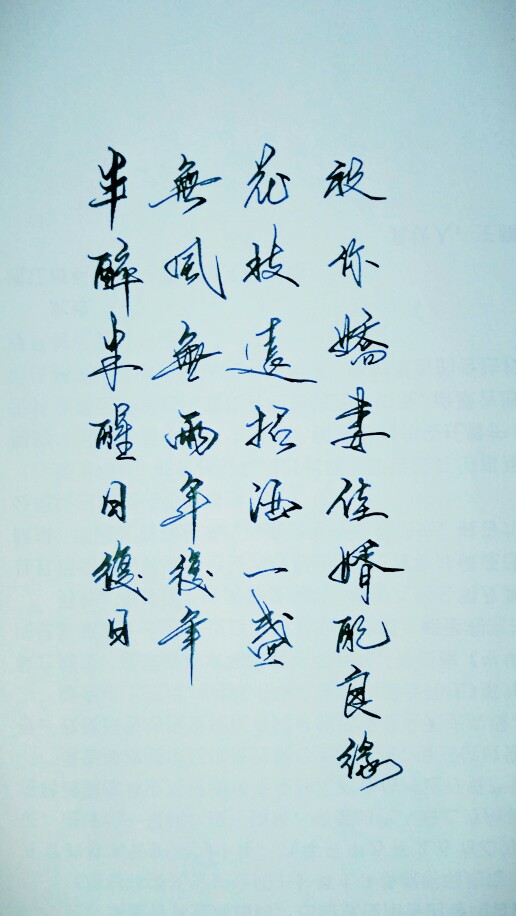 祝你嬌妻佳婿配良緣
花枝還招酒一盞
無風無雨年復年
半醉半醒日復日